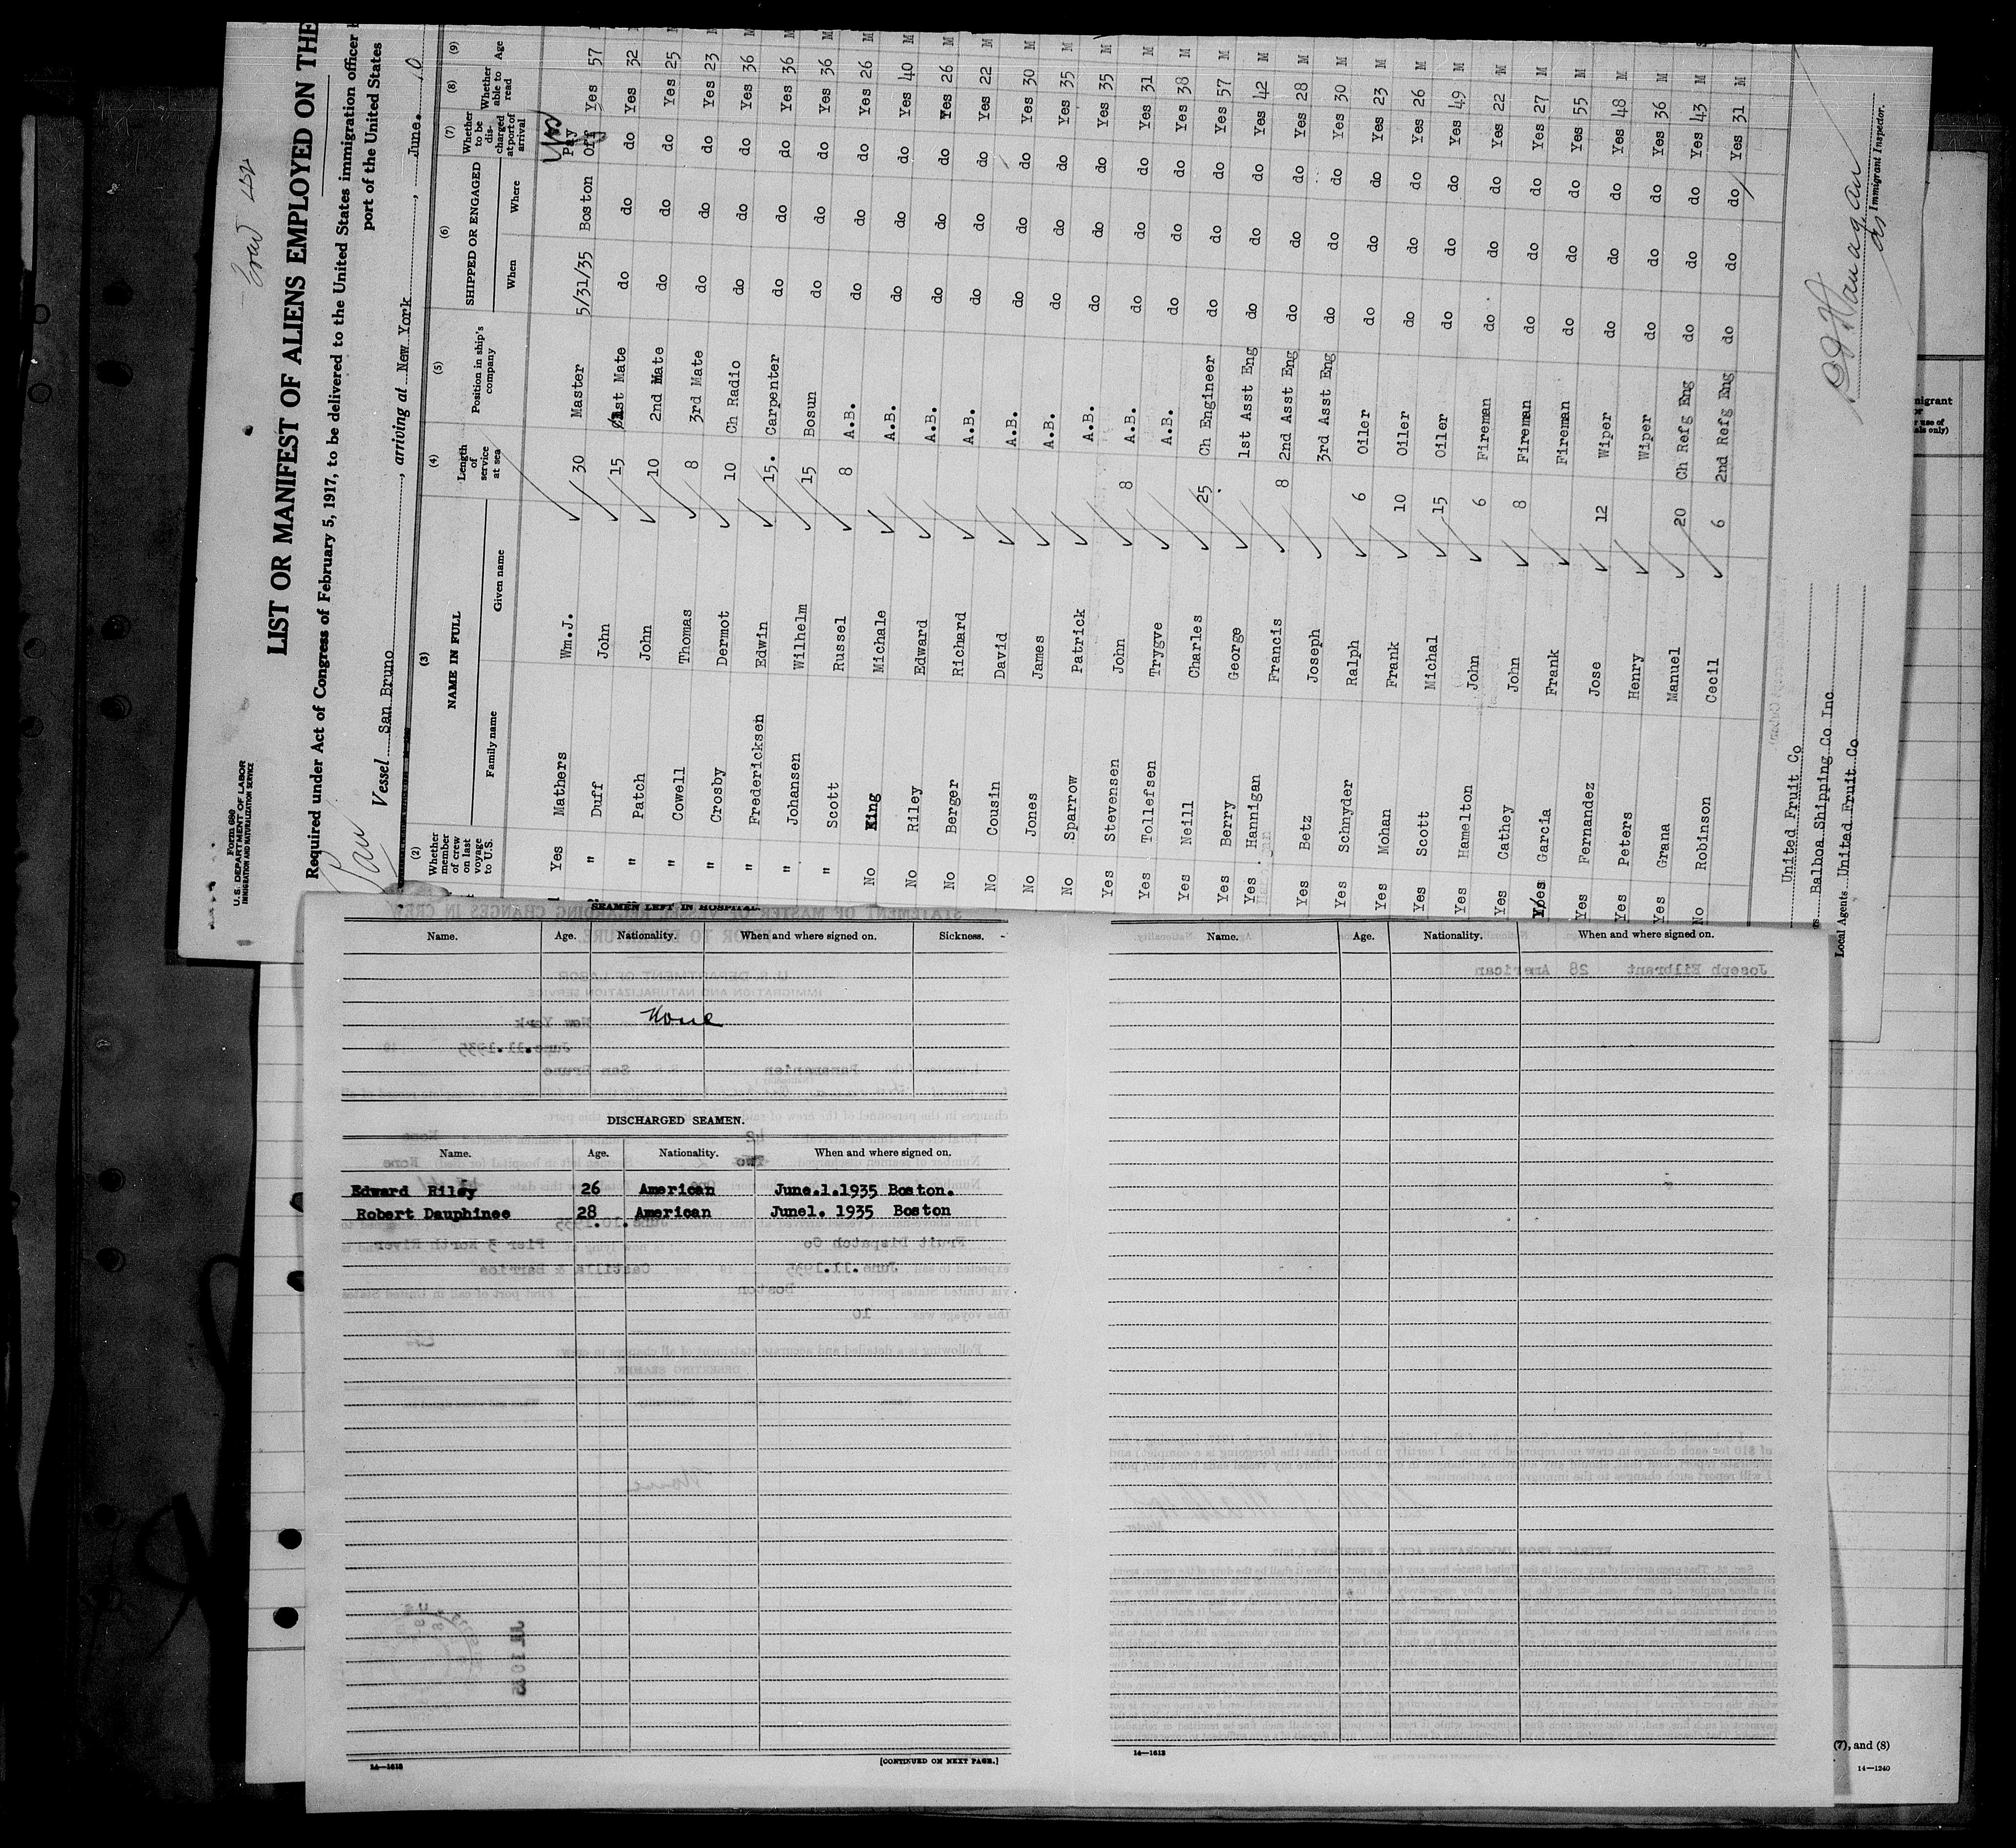 Form 680
U.S. DEPARTMENT OF LABOR
IMMIGRATION AND NATURALIZATION SERVICE
LIST OR MANIFEST OF ALIENS EMPLOYED ON THE
Required under Act of Congress of February 5, 1917, to be delivered to the United States immigration officer
port of the United States
Vessel San Bruno, arriving at New York, June. 10
(2) (3) (4) (5) (6) (7) (8) (9)
Whether member of crew on last voyage to U.S. NAME IN FULL Family name Given name Length of service at sea Position in ship's company SHIPPED OR ENGAGED When Where Whether to be discharged at port of arrival Whether able to read Age
Yes Mathers Wm.J. 30 Master 5/31/35 Boston Pay Off Yes 57
" Duff John 15 1st Mate do do do Yes 32 M
" Patch John 10 2nd Mate do do do Yes 25 M
" Cowell Thomas 8 3rd Mate do do do Yes 23 M
" Crosby Dermot 10 Ch Radio do do do Yes 36 M
" Fredericksen Edwin 15. Carpenter do do do Yes 36 M
" Johansen Wilhelm 15 Bosun do do do Yes 36 M
" Scott Russel 8 A.B. do do do Yes 26 M
No King Michale A.B. do do do Yes 40 M
No Riley Edward A.B. do do do Yes 26 M
No Berger Richard A.B. do do do Yes 22 M
No Cousin David A.B. do do do Yes 30 M
No Jones James A.B. do do do Yes 35 M
No Sparrow Patrick A.B. do do do Yes 35 M
Yes Stevensen John 8 A.B. do do do Yes 31 M
Yes Tollefsen Trygve A.B. do do do Yes 38 M
Yes Neill Charles 25 Ch Engineer do do do Yes 57 M
Yes Berry George 1st Asst Eng do do do Yes 42 M
Yes Hannigan Francis 8 2nd Asst Eng do do do Yes 28 M
Yes Betz Joseph 3rd Asst Eng do do do Yes 30 M
Yes Schnyder Ralph 6 Oiler do do do Yes 23 M
Yes Mohan Frank 10 Oiler do do do Yes 26 M
Yes Scott Michal 15 Oiler do do do Yes 49 M
Yes Hamelton John 6 Fireman do do do Yes 22 M
Yes Cathey John 8 Fireman do do do Yes 27 M
Yes Garcia Frank Fireman do do do Yes 55 M
Yes Fernandez Jose 12 Wiper do do do Yes 48 M
Yes Peters Henry Wiper do do do Yes 36 M
Yes Grana Manuel 20 Ch Refg Eng do do do Yes 43 M
No Robinson Cecil 6 2nd Refg Eng do do do Yes 31 M
United Fruit Co
Balboa Shipping Co Inc
Local Agents United Fruit Co
Immigrant Inspector.
SEAMEN LEFT IN HOSPITAL.
Name. Age. Nationality. When and where signed on. Sickness.
None
DISCHARGED SEAMEN.
Name. Age. Nationality. When and where signed on.
Edward Riley 26 American June.1.1935 Boston.
Robert Dauphinee 28 American June1. 1935 Boston
14—1613
[CONTINUED ON NEXT PAGE.]
Name. Age. Nationality. When and where signed on.
14—1613
(7), and (8)
14—1240